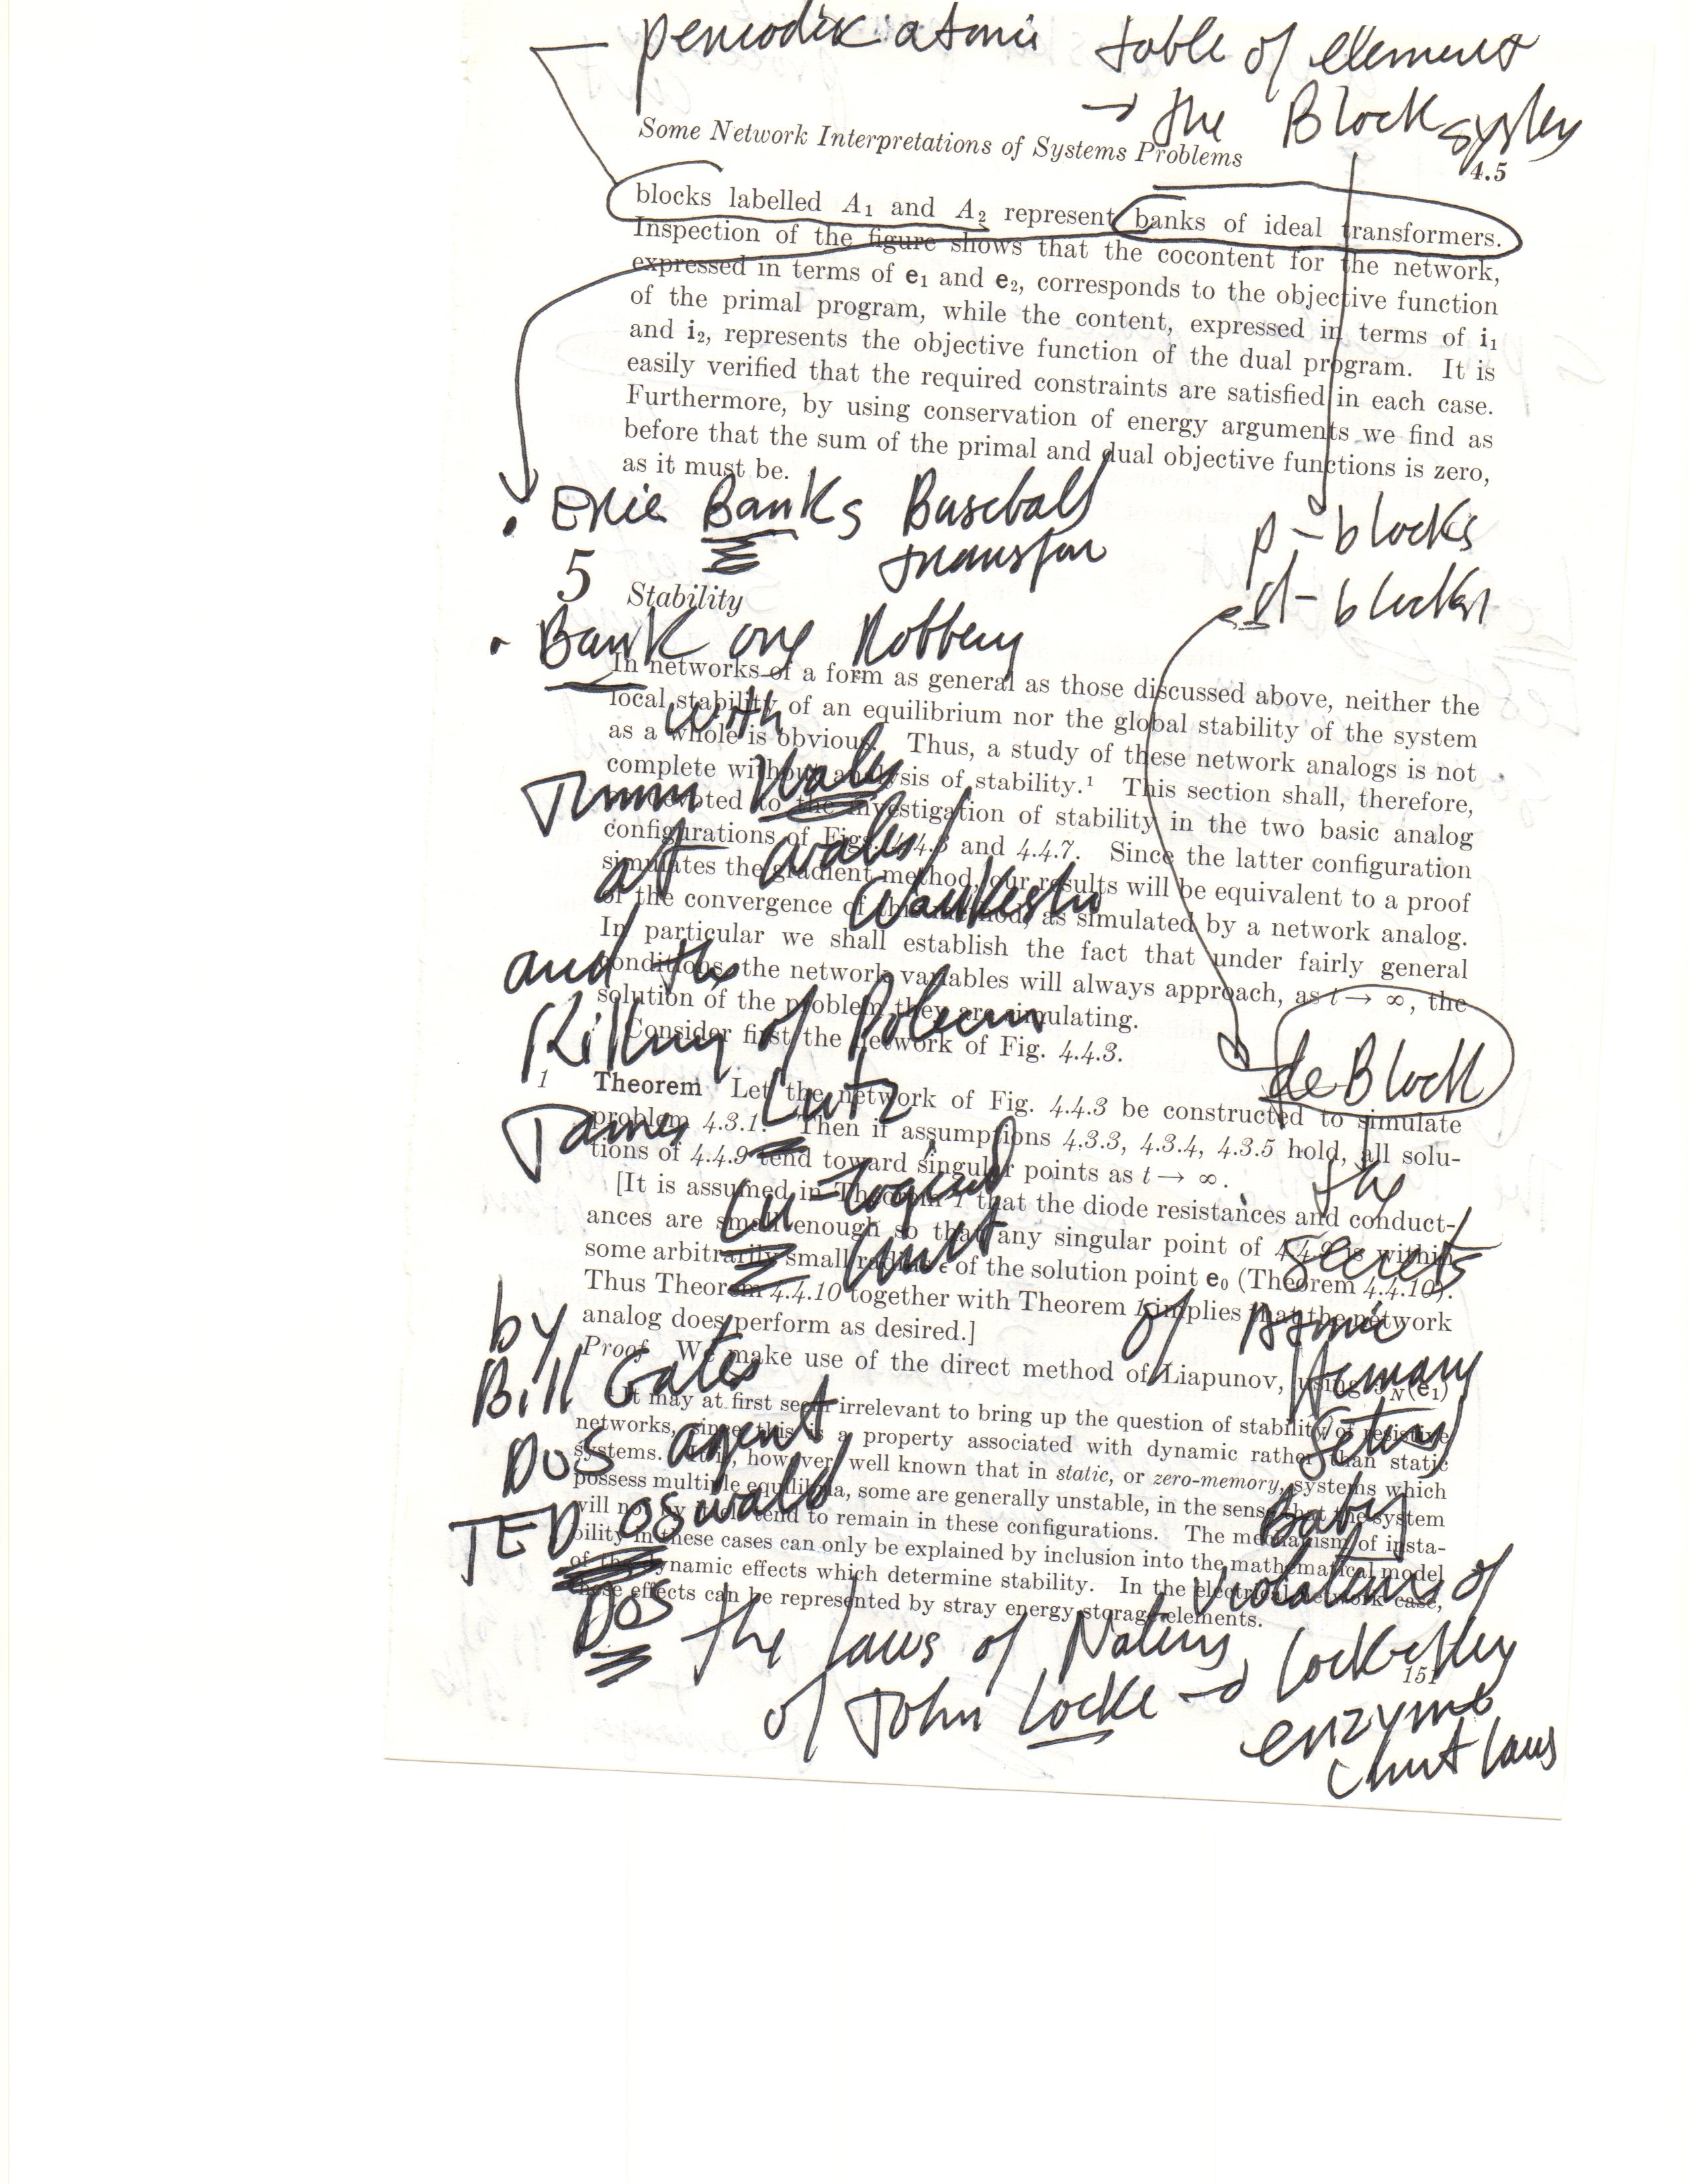 periodix atomic table of element
→ the Block system
Some Network Interpretations of Systems Problems
4.5
blocks labelled A₁ and A₂ represent banks of ideal transformers.
Inspection of the figure shows that the cocontent for the network,
expressed in terms of e₁ and e₂, corresponds to the objective function
of the primal program, while the content, expressed in terms of i₁
and i₂, represents the objective function of the dual program. It is
easily verified that the required constraints are satisfied in each case.
Furthermore, by using conservation of energy arguments we find as
before that the sum of the primal and dual objective functions is zero,
as it must be.
• Ernie Banks Baseball
transfer
p-blocks
d-blocks
5
Stability
• Bank one Robbery
In networks of a form as general as those discussed above, neither the
local stability of an equilibrium nor the global stability of the system
with
as a whole is obvious. Thus, a study of these network analogs is not
complete without analysis of stability.¹ This section shall, therefore,
be devoted to the investigation of stability in the two basic analog
configurations of Figs. 4.4.3 and 4.4.7. Since the latter configuration
at Wales
simulates the gradient method, our results will be equivalent to a proof
Waukesha
of the convergence of this method, as simulated by a network analog.
In particular we shall establish the fact that under fairly general
and the
conditions the network variables will always approach, as t → ∞, the
solution of the problem they are simulating.
Killing of Police
Consider first the network of Fig. 4.4.3.
deBlock
1 Theorem Let the network of Fig. 4.4.3 be constructed to simulate
James Lutz
problem 4.3.1. Then if assumptions 4.3.3, 4.3.4, 4.3.5 hold, all solu-
tions of 4.4.9 tend toward singular points as t → ∞.
the
Lu-logical
[It is assumed in Theorem 1 that the diode resistances and conduct-
ances are small enough so that any singular point of 4.4.9 is within
unit
secrets
some arbitrarily small radius ε of the solution point e₀ (Theorem 4.4.10).
Thus Theorem 4.4.10 together with Theorem 1 implies that the network
of Atomic
by
analog does perform as desired.]
Proof We make use of the direct method of Liapunov, using 𝒥N(e₁)
Bill Gates
¹ It may at first seem irrelevant to bring up the question of stability of resistive
networks, since this is a property associated with dynamic rather than static
DOS agent
systems. It is, however, well known that in static, or zero-memory, systems which
possess multiple equilibria, some are generally unstable, in the sense that the system
TED OSwald
Baby
will not by itself tend to remain in these configurations. The mechanism of insta-
bility in these cases can only be explained by inclusion into the mathematical model
of the dynamic effects which determine stability. In the electrical network case,
these effects can be represented by stray energy storage elements.
violations of
DOS the laws of Nature
of John Locke → lock & key
151
enzyme
laws